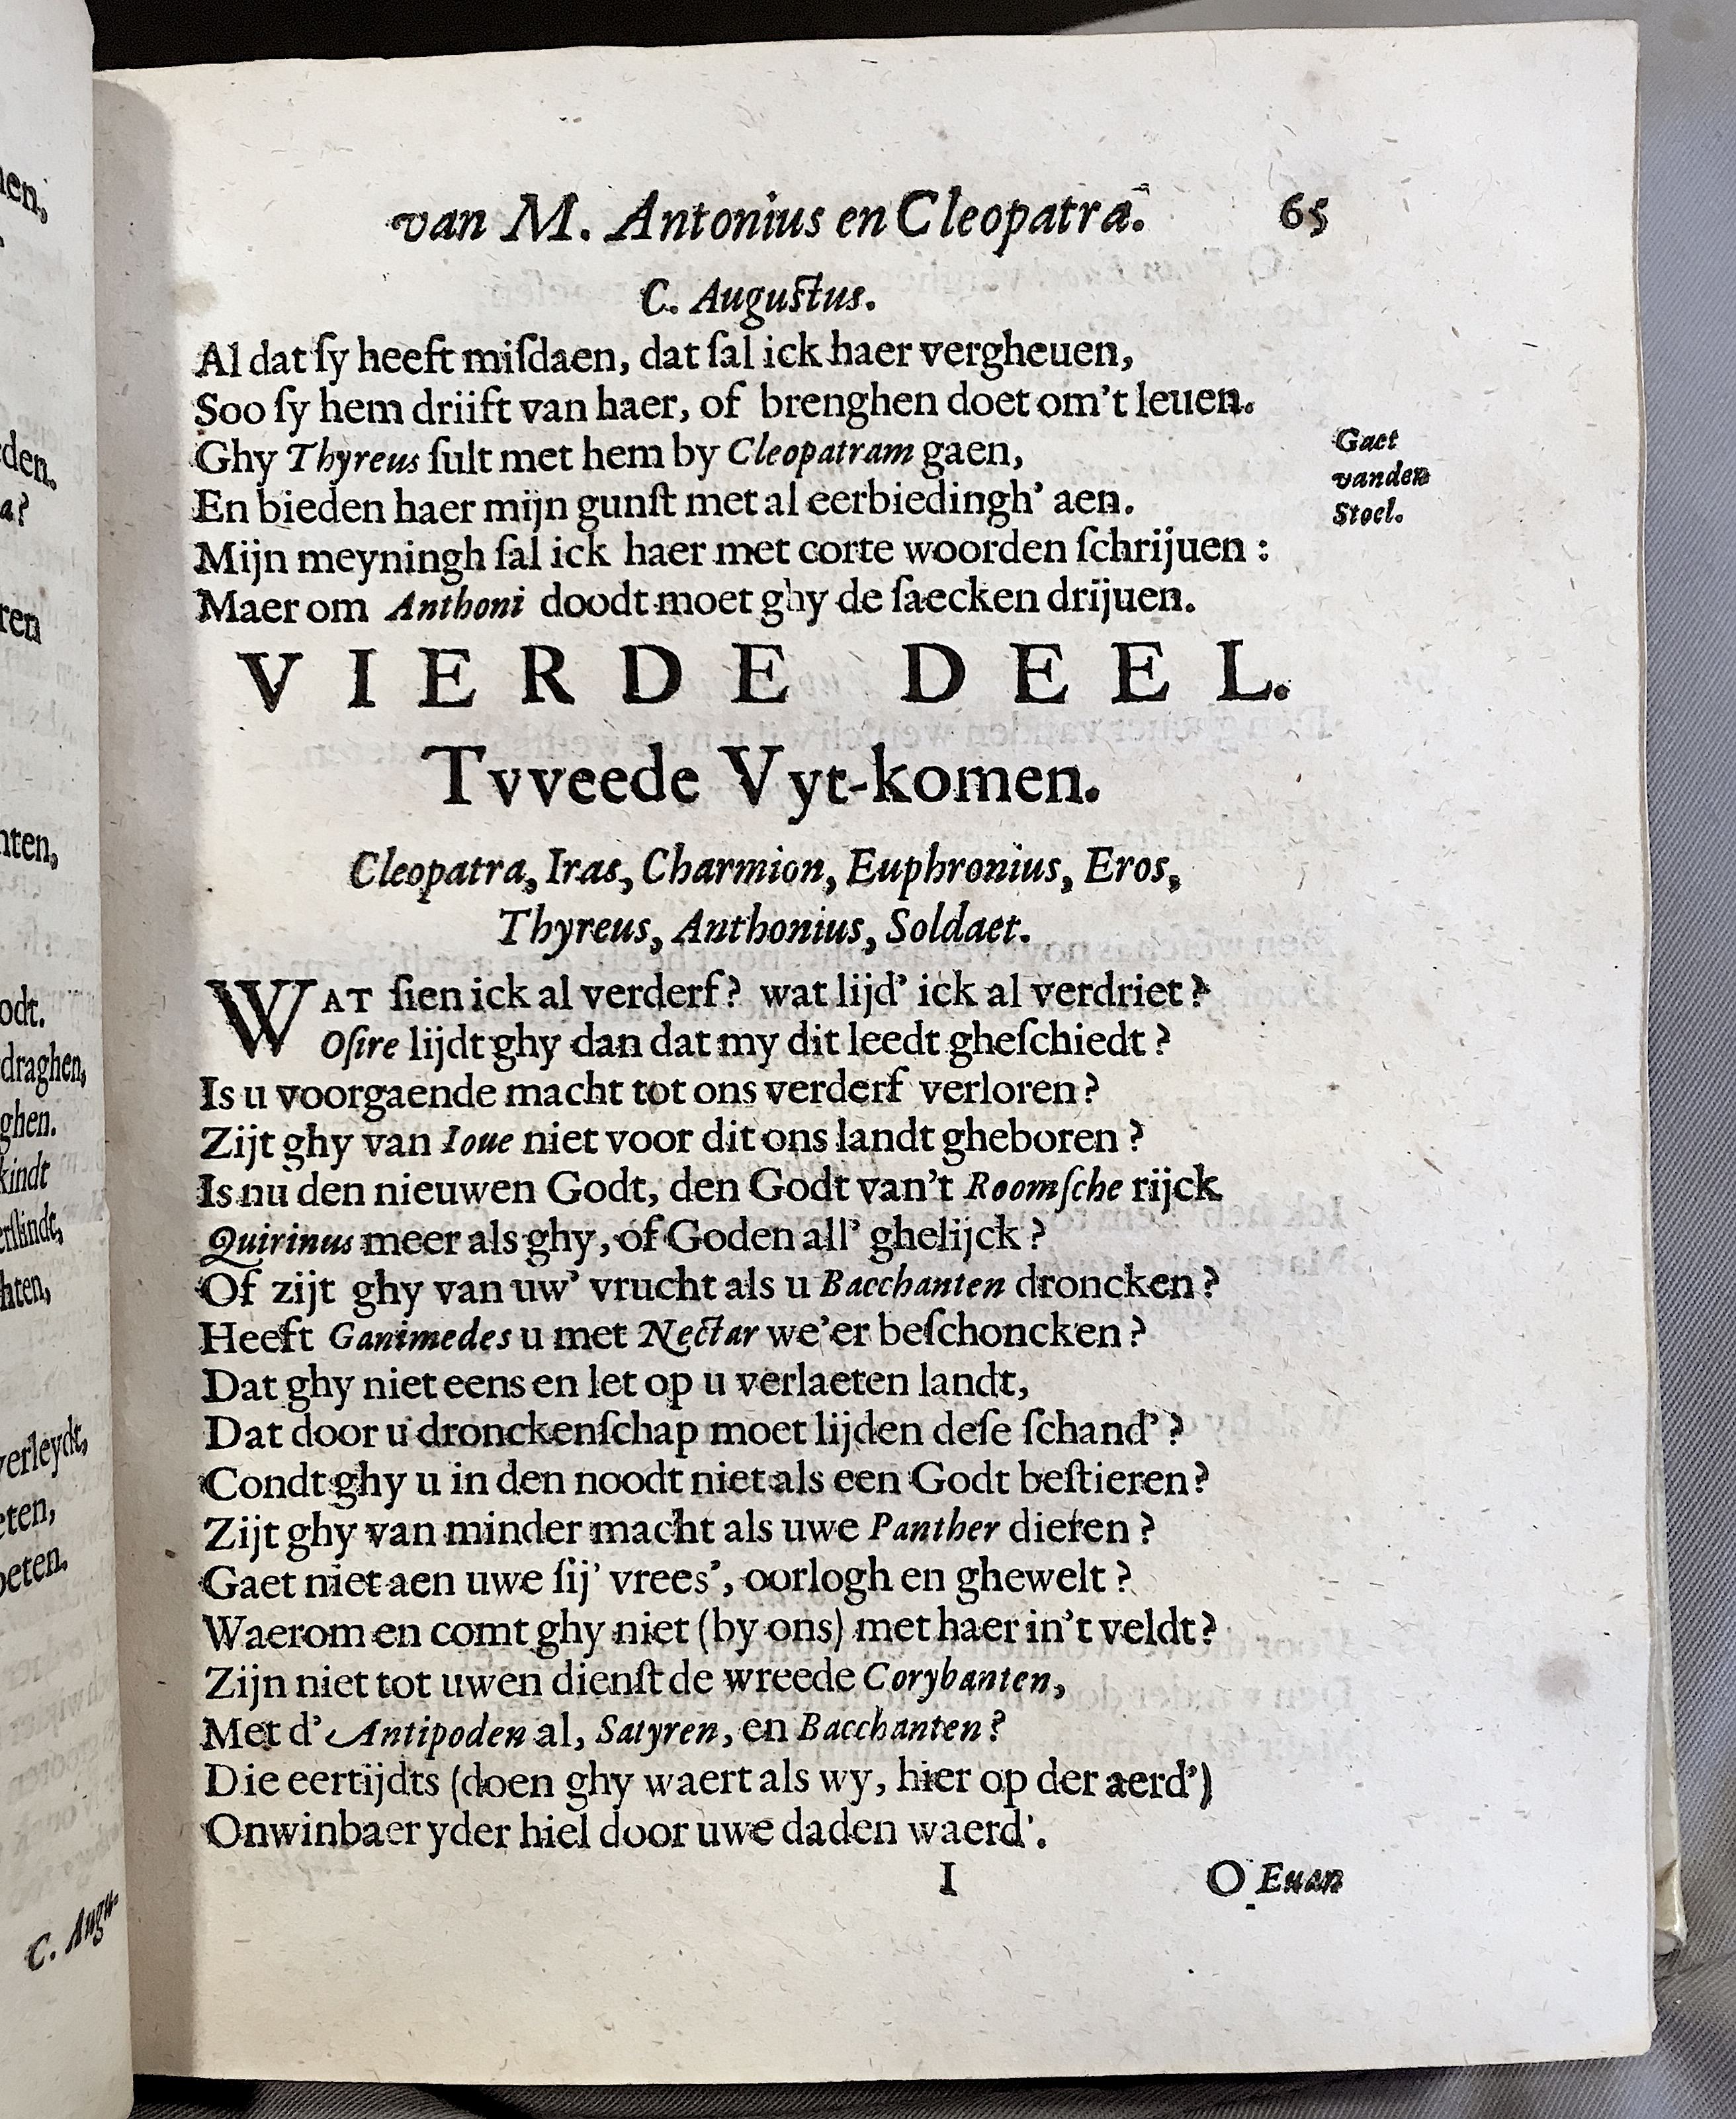 van M. Antonius en Cleopatra. 65
C. Augustus.
Al dat ſy heeft miſdaen, dat ſal ick haer vergheuen,
Soo ſy hem driift van haer, of brenghen doet om't leuen.
Ghy Thyreus ſult met hem by Cleopatram gaen,
Gaet
vanden
Stoel.
En bieden haer mijn gunſt met al eerbiedingh' aen.
Mijn meyningh ſal ick haer met corte woorden ſchrijuen :
Maer om Anthoni doodt moet ghy de ſaecken drijuen.
VIERDE DEEL.
Tvveede Vyt-komen.
Cleopatra, Iras, Charmion, Euphronius, Eros,
Thyreus, Anthonius, Soldaet.
WAT ſien ick al verderf? wat lijd' ick al verdriet?
Oſire lijdt ghy dan dat my dit leedt gheſchiedt?
Is u voorgaende macht tot ons verderf verloren?
Zijt ghy van Ioue niet voor dit ons landt gheboren?
Is nu den nieuwen Godt, den Godt van't Roomſche rijck
Quirinus meer als ghy, of Goden all' ghelijck?
Of zijt ghy van uw' vrucht als u Bacchanten droncken?
Heeft Ganimedes u met Nectar we'er beſchoncken?
Dat ghy niet eens en let op u verlaeten landt,
Dat door u dronckenſchap moet lijden deſe ſchand'?
Condt ghy u in den noodt niet als een Godt beſtieren?
Zijt ghy van minder macht als uwe Panther dieren?
Gaet niet aen uwe ſij' vrees', oorlogh en ghewelt?
Waerom en comt ghy niet (by ons) met haer in't veldt?
Zijn niet tot uwen dienſt de wreede Corybanten,
Met d' Antipoden al, Satyren, en Bacchanten?
Die eertijdts (doen ghy waert als wy, hier op der aerd')
Onwinbaer yder hiel door uwe daden waerd'.
I O Euan